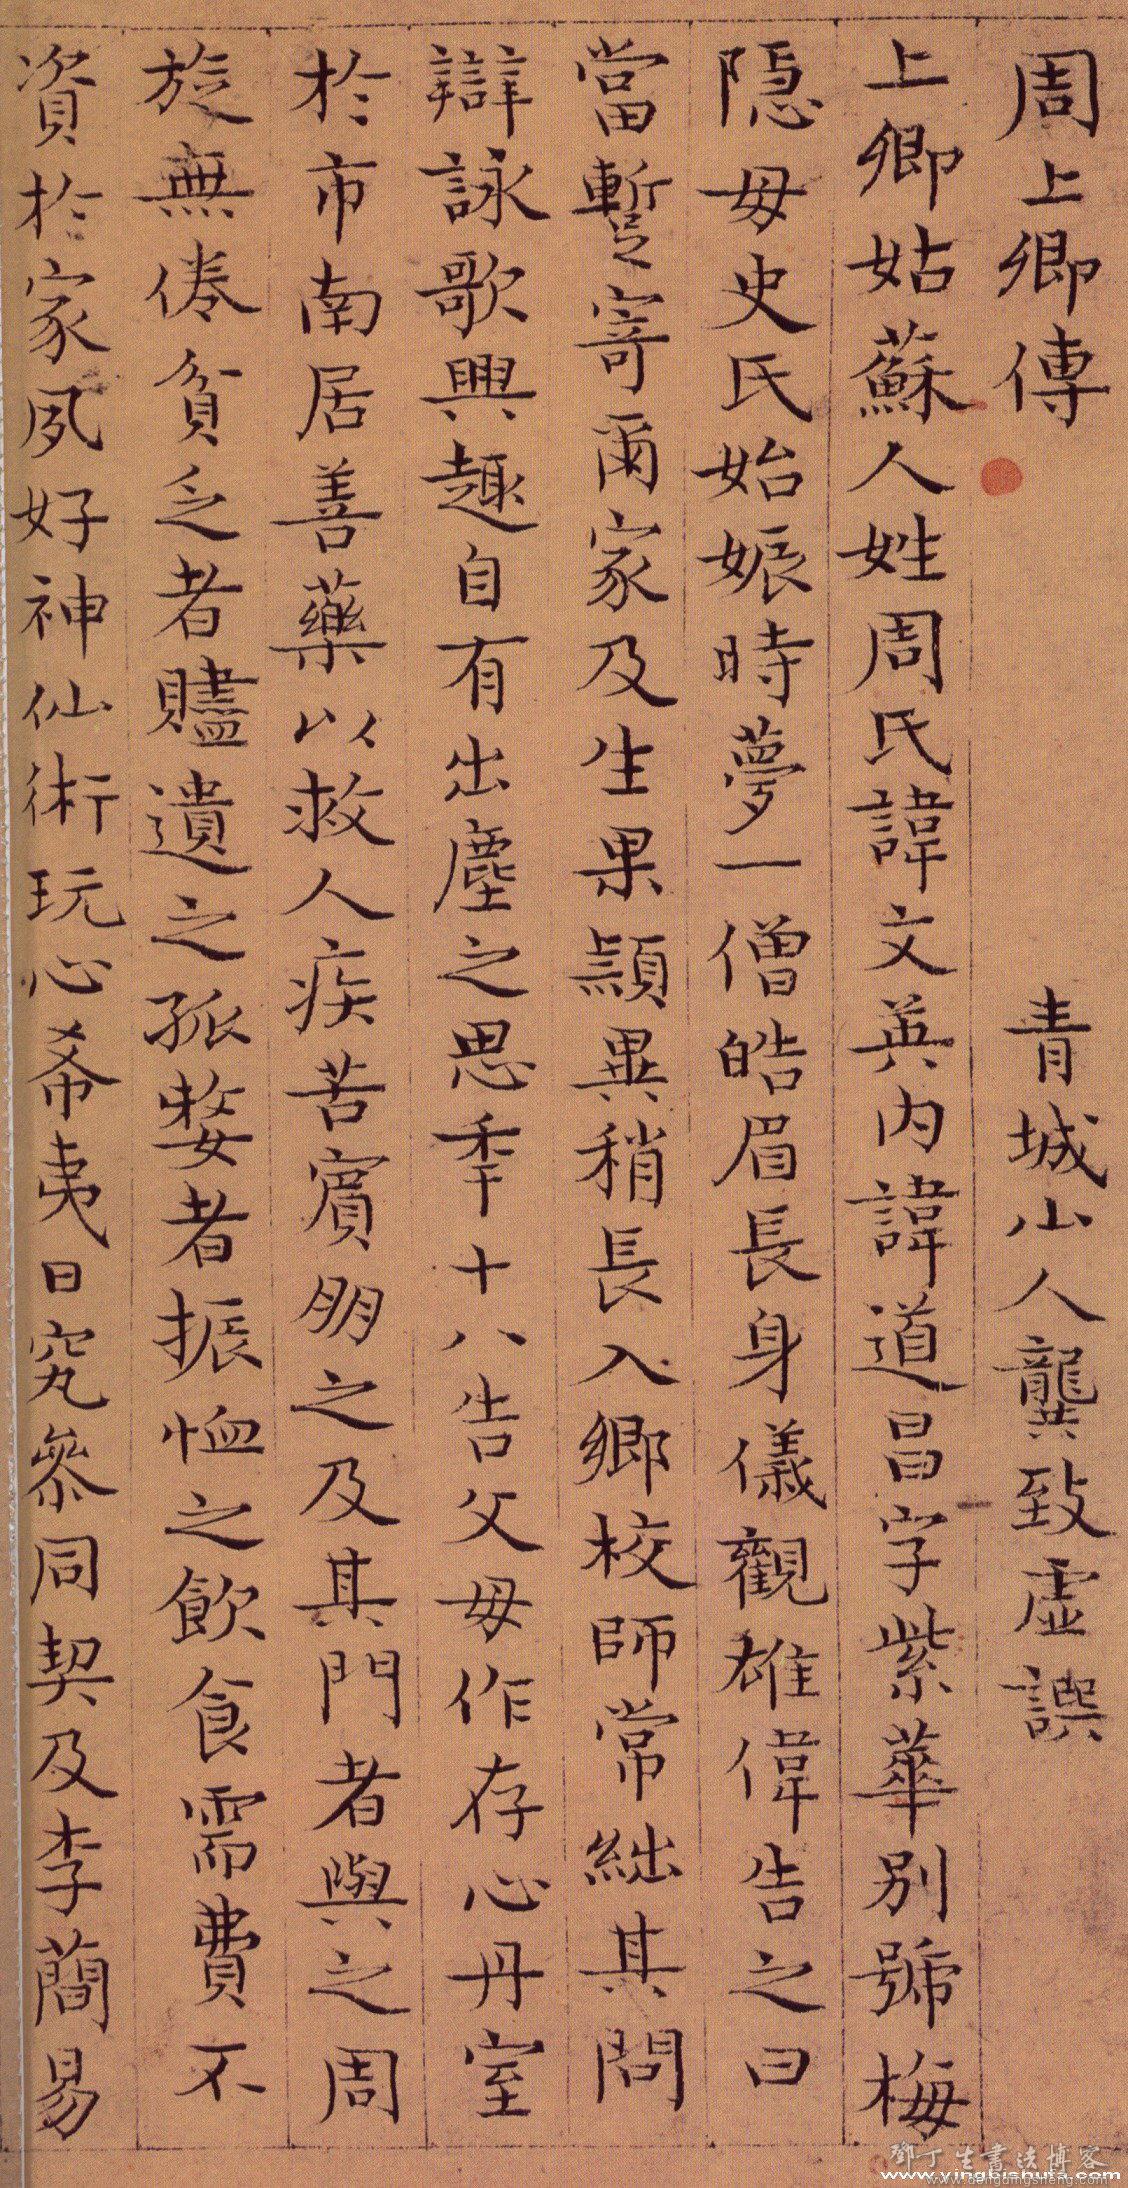 周上卿傳
青城山人龔致虛譔
上卿姑蘇人姓周氏諱文英内諱道昌字紫華别號梅
隠母史氏始娠時夢一僧皓眉長身儀觀雄偉告之曰
當蹔寄爾家及生果顯異稍長入鄉校師常絀其問
辯詠歌興趣自有出塵之思秊十八告父母作存心丹室
於市南居善藥以救人疾苦賓朋之及其門者與之周
旋無倦貧乏者贐遺之孤嫠者振恤之飲食需費不
資於家夙好神仙術玩心希夷日究參同契及李蕑易
鄧丁生書法博客
www.yingbishufa.com
www.dengdingsheng.com